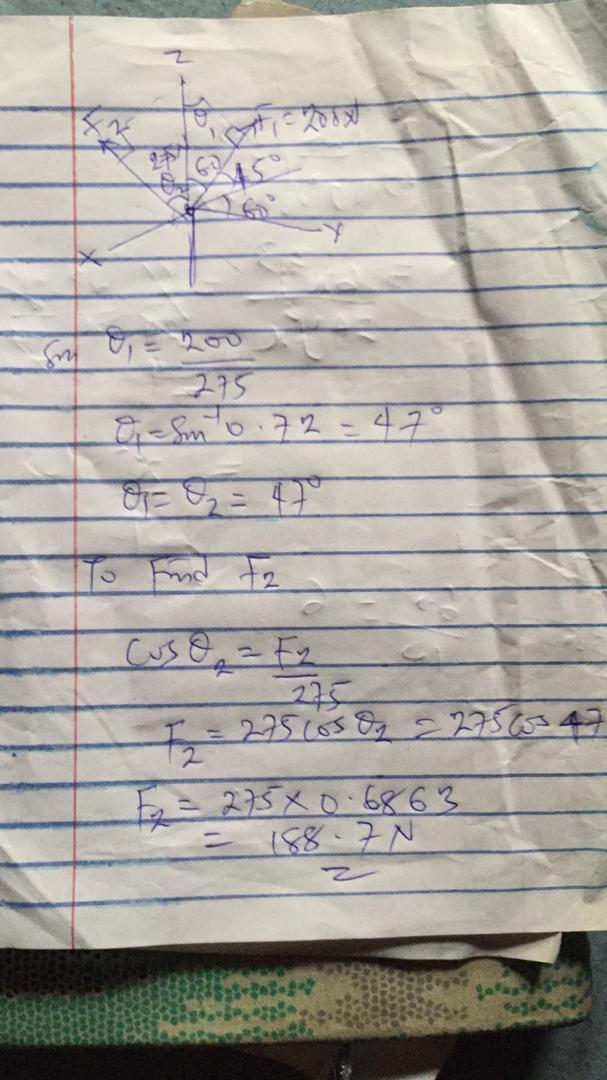 Z
F2 θ1 F1 = 200N
275 60 45°
θ2 60°
X Y
Sin θ1 = 200
275
θ1 = Sin⁻¹ 0.72 = 47°
θ1 = θ2 = 47°
To Find F2
Cos θ2 = F2
275
F2 = 275 cos θ2 = 275 cos 47
F2 = 275 x 0.6863
= 188.7 N